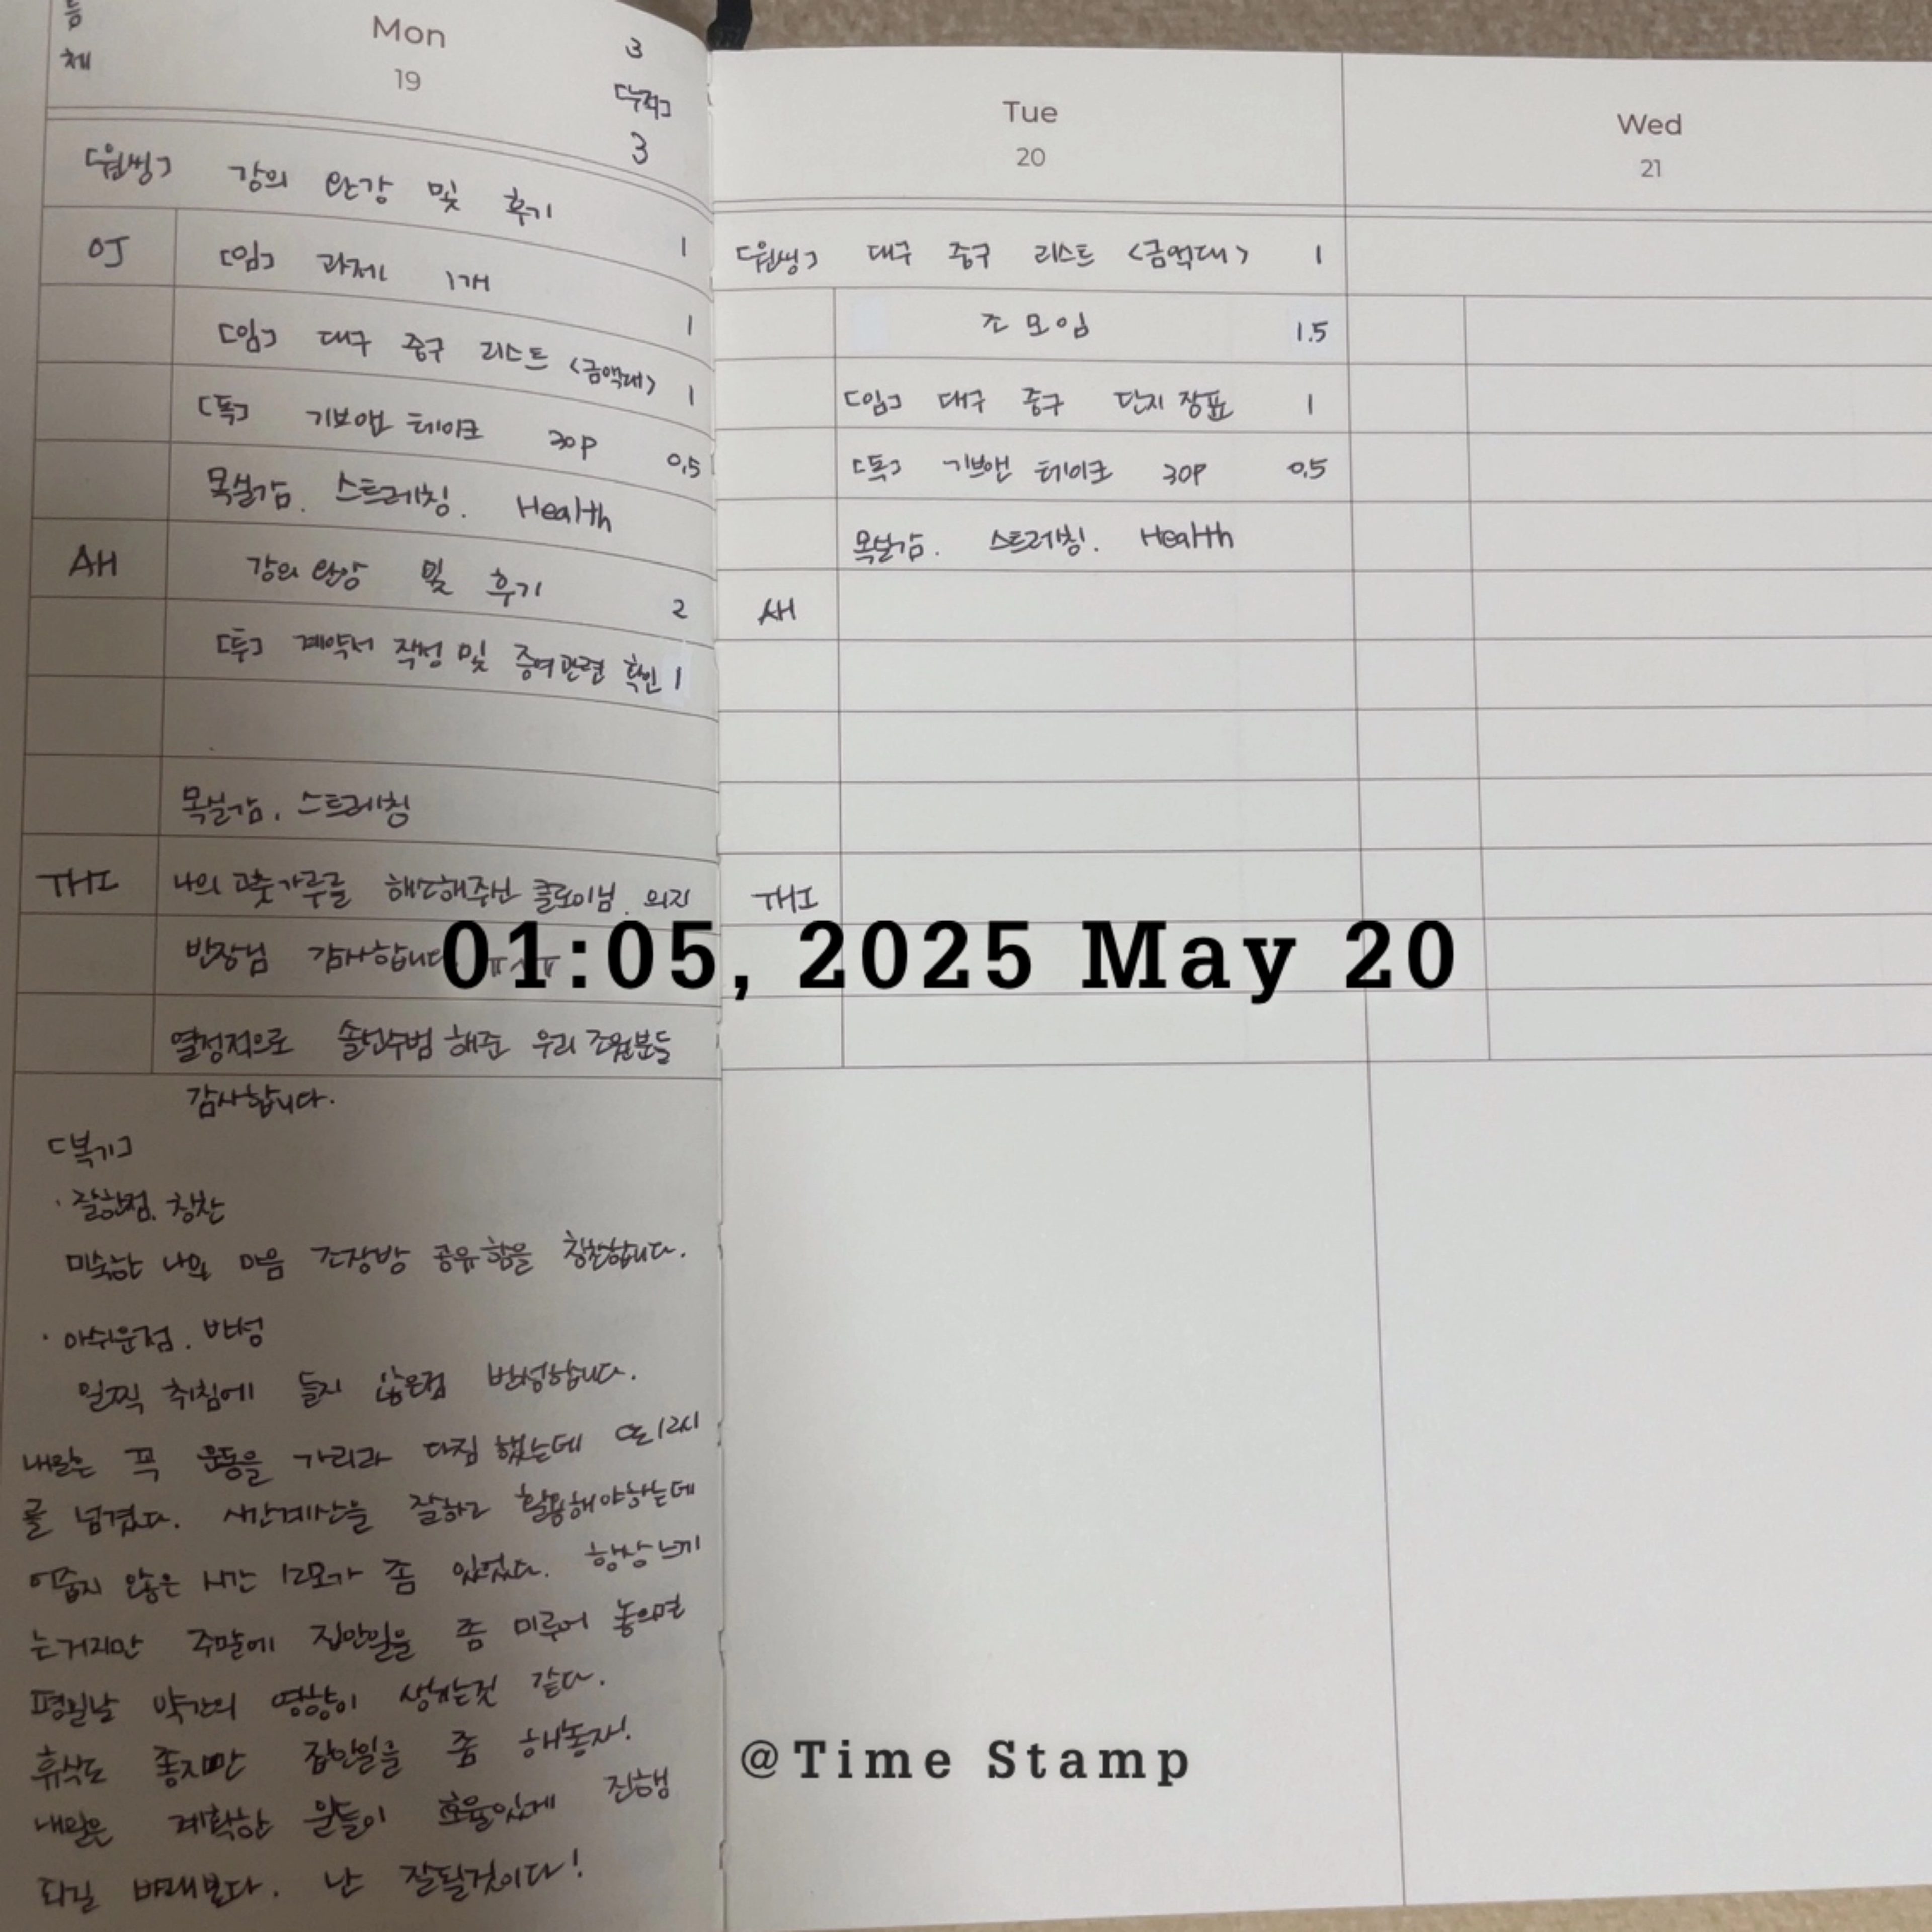 Mon
19
3
[누적]
3
체
[원씽] 강의 완강 및 후기
OJ [임] 과제 1개 1
[임] 대구 중구 리스트 <금액대> 1
[독] 기브앤 테이크 30P 1
목실감. 스트레칭. Health 0.5
AH 강의 완강 및 후기 2
[투] 계약서 작성 및 증여관련 확인 1
목실감. 스트레칭
THI 나의 고춧가루를 해소해주신 클로이님. 의지
반장님 감사합니다
열정적으로 솔선수범 해준 우리 조원분들
감사합니다.
[복기]
· 잘한점. 칭찬
미숙한 나의 마음 조장방 공유함을 칭찬합니다.
· 아쉬운점. 반성
일찍 취침에 들지 않은점 반성합니다.
내일은 꼭 운동을 가리라 다짐했는데 또 12시
를 넘겼다. 시간계산을 잘하고 활용해야하는데
않은 시간 소모가 좀 있었다. 항상 느끼
는거지만 주말에 집안일을 좀 미루어 놓으면
평일날 약간의 영향이 생기는것 같다.
휴식도 좋지만 집안일을 좀 해놓자!
내일은 계획한 일들이 효율있게 진행
되길 바래본다. 난 잘될것이다!
Tue
20
[원씽] 대구 중구 리스트 <금액대> 1
조모임 1.5
[임] 대구 중구 단지 장표 1
[독] 기브앤 테이크 30P 0.5
목실감. 스트레칭. Health
AH
THI
Wed
21
01:05, 2025 May 20
@Time Stamp